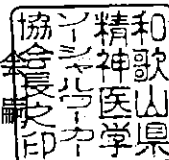 和歌山県
精神医学
ソーシャルワーカー
協会長之印